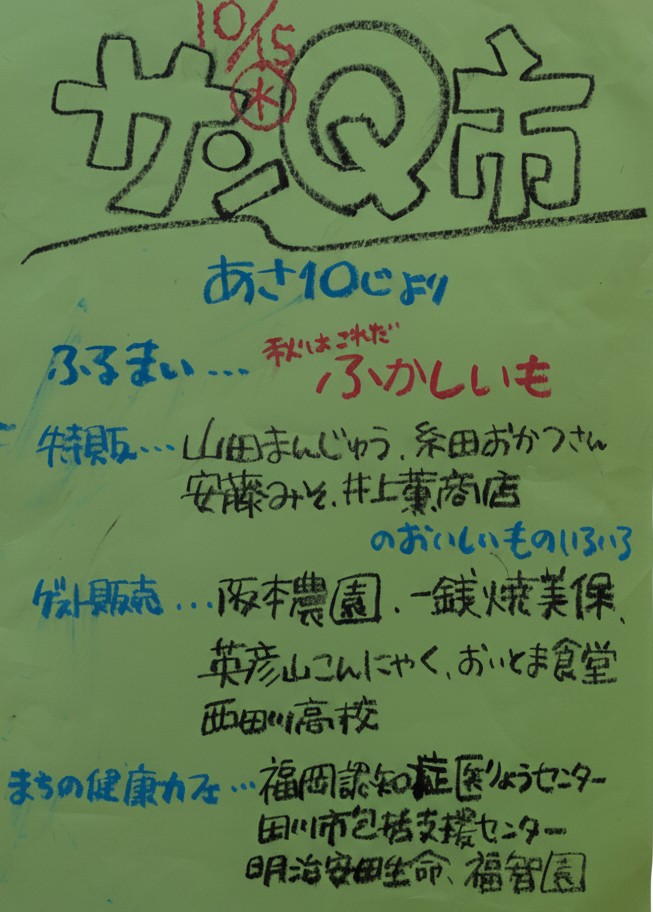 10/15
㊌
サンQ市
あさ10じより
ふるまい… 秋はこれだ ふかしいも
特販…山田まんじゅう、糸田おかつさん
安藤みそ、井上薫商店
のおいしいものいろいろ
ゲスト販売…阪本農園、一銭焼美保、
英彦山こんにゃく、おいとま食堂
西田川高校
まちの健康カフェ…福岡認知症医りょうセンター
田川市包括支援センター
明治安田生命、福智園